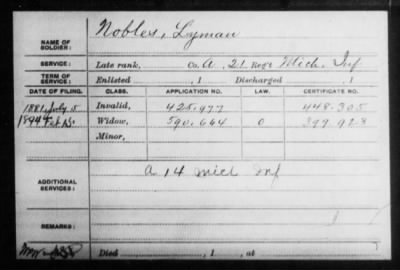 NAME OF SOLDIER: Nobles, Lyman
SERVICE: Late rank, Co. A, 21 Reg't Mich. Inf
TERM OF SERVICE: Enlisted , 1 Discharged , 1
DATE OF FILING. CLASS. APPLICATION NO. LAW. CERTIFICATE NO.
1881 July 5 Invalid, 425.977 448.305
1894 Widow, 590.664 0 399.923
Minor,
ADDITIONAL SERVICES: A 14 Mich Inf
REMARKS:
Died , 1 , at